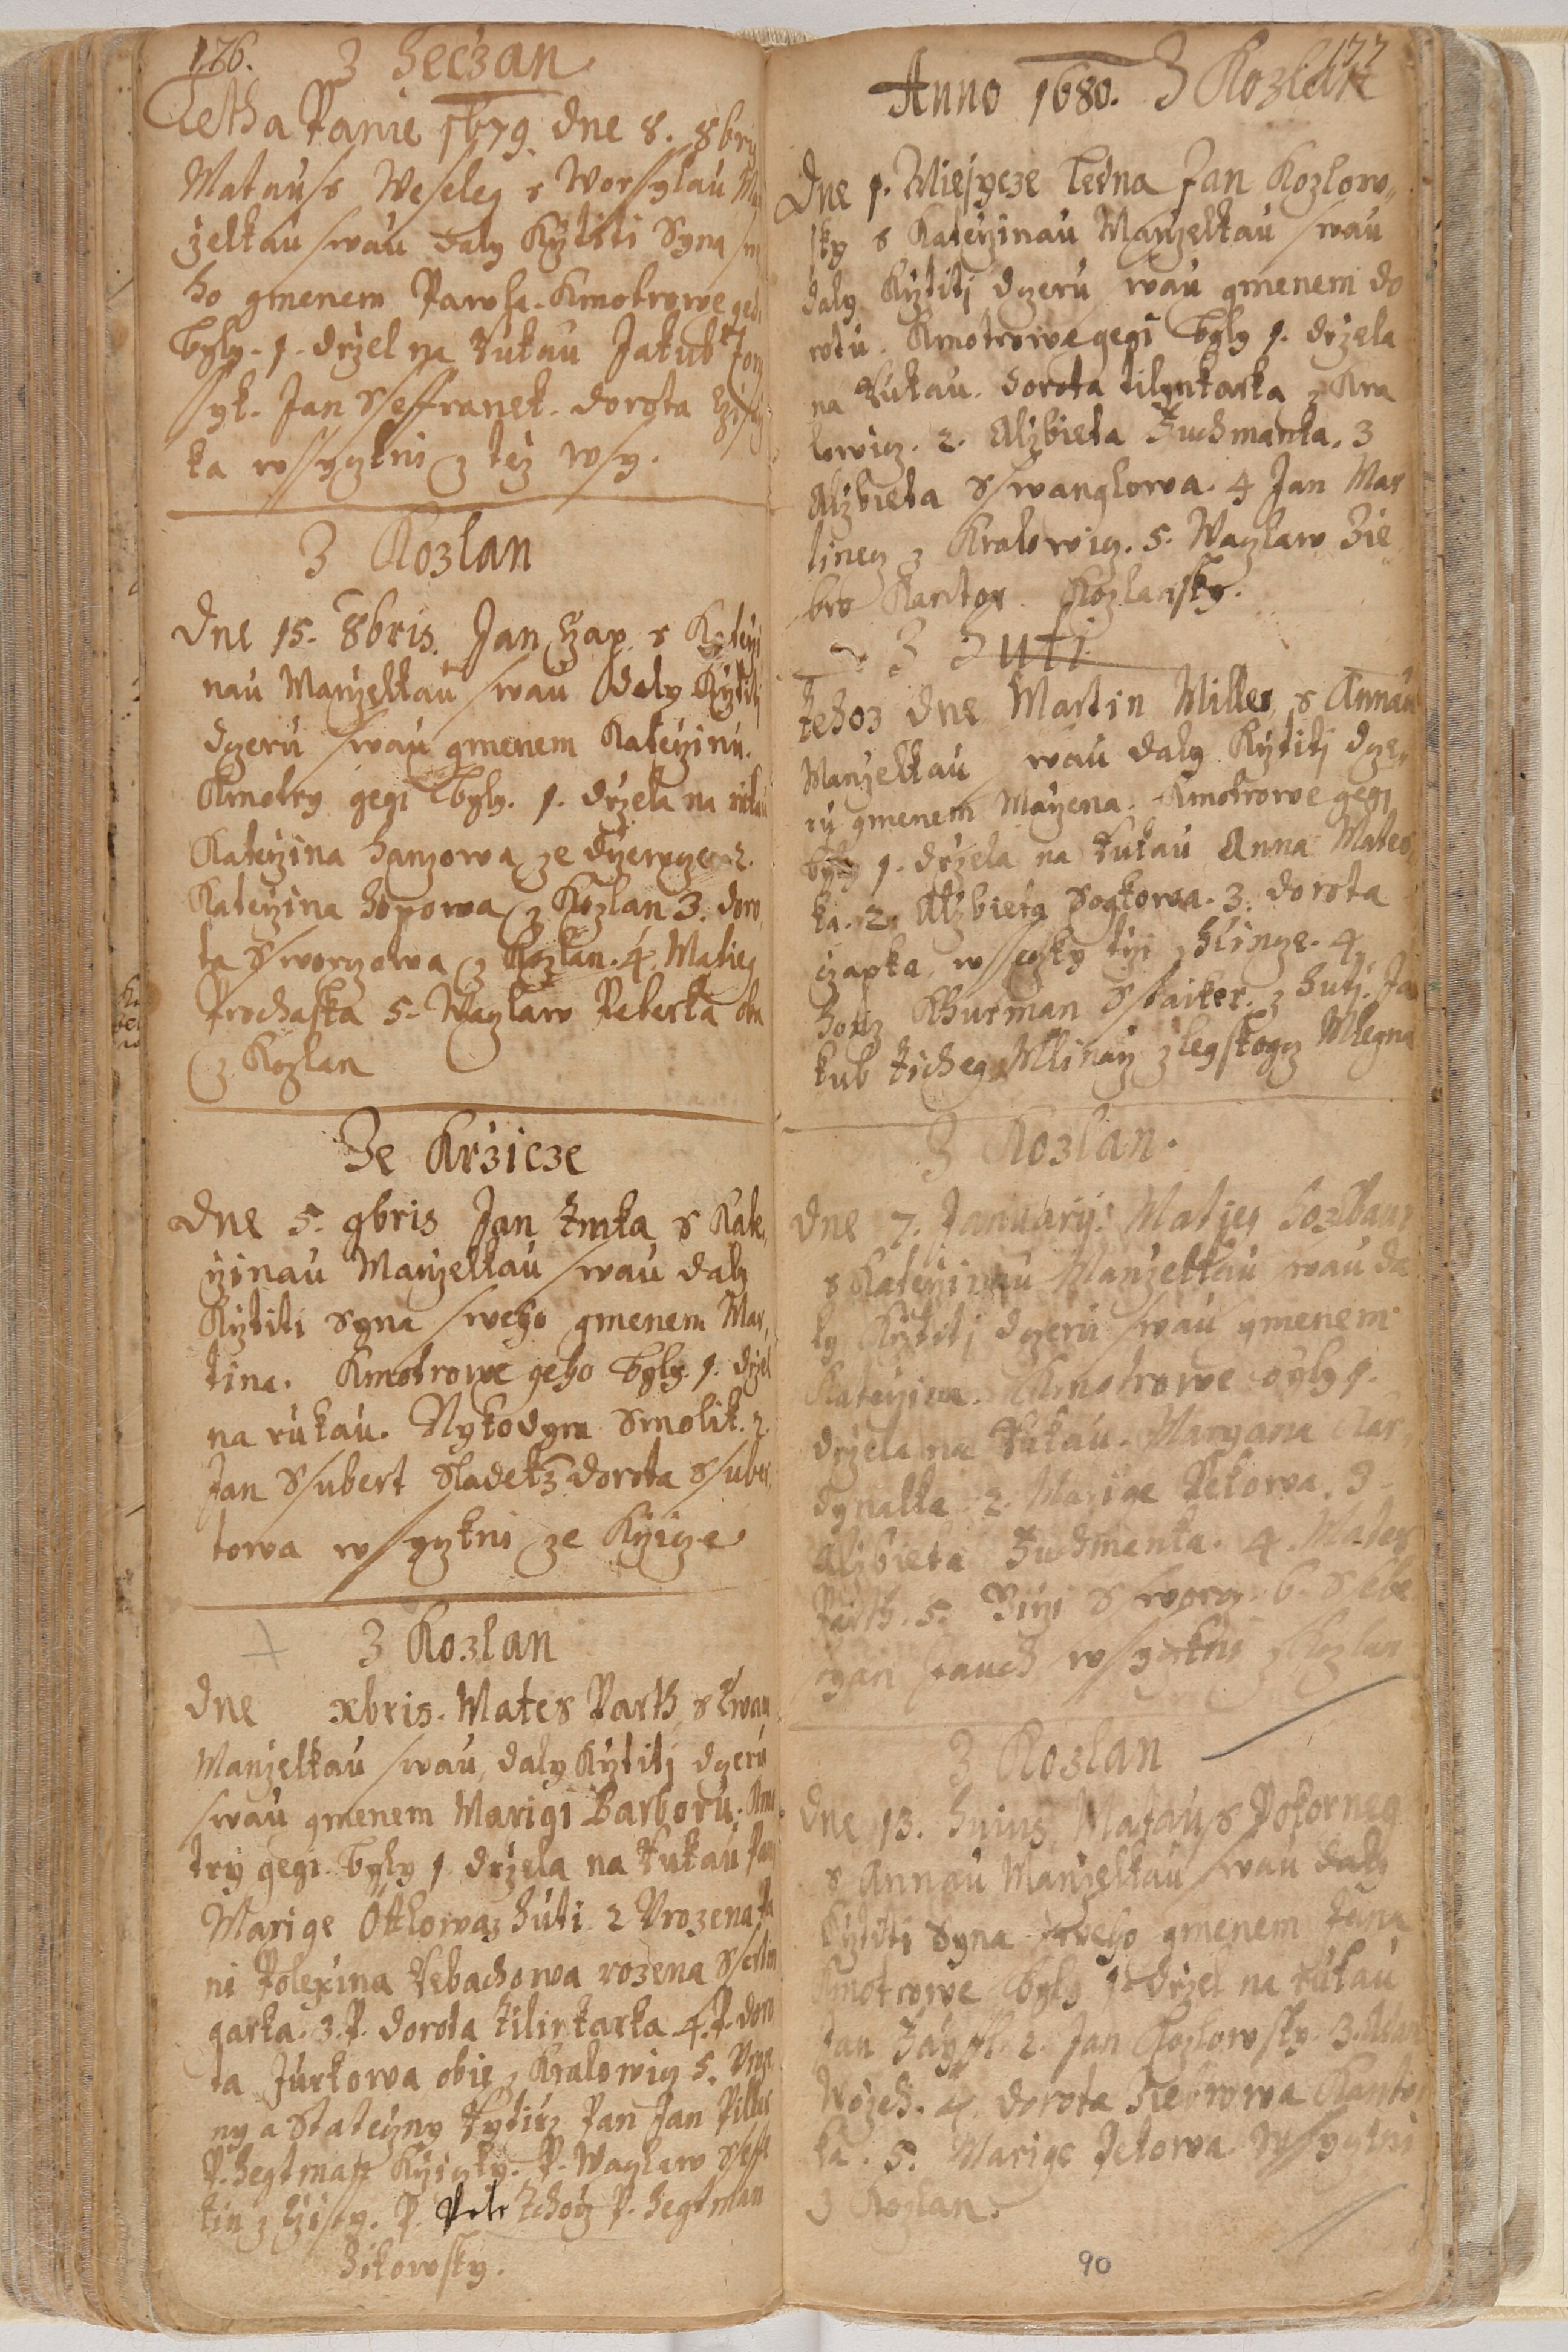 176.
Z Hečzan
Letha Panie 1679. dne 8. 8bris
Matauss Weseley s Worssylau
zelkau swau daly Krztiti Syna
ho gmenem Pawla. Kmotrowe
Byly. 1. držel na Rukau Jakub
syk. Jan Sseffranek. dorota
ka wssyczkni z tež wsy.
Z Kozlan
Dne 15. 8bris. Jan Czap s Katerzi
nau Manzelkau swau daly Krztiti
dczeru swau gmenem Katerzinu.
Kmotry gegi Byly. 1. držela na rukau
Katerzina hanzowa ze dzewcze 2.
Katerzina hopowa z Kozlan 3. doro
ta Ssworczowa z Kozlan. 4. Matieg
Prochaska 5. Waczlaw Peberka oba
z Kozlan
Ze Kržicze
Dne 5. 9bris Jan Kmka s Kate
rzinau Manzelkau swau daly
Krztiti Syna sweho gmenem Mar
tina. Kmotrowe geho Byly. 1. držel
na rukau. Nykodym Smolik. 2.
Jan Ssubert Sladek 3 dorota Ssuber
towa wssyczkni ze Krzicze
Z Kozlan
Dne xbris. Mates Parth s Ewau
Manzelkau swau, daly Krztiti dczeru
swau gmenem Marigi Barboru. Kmo
try gegi Byly 1. držela na Rukau
Marige Ottlowa z húti 2 Urozena Pa
ni Polexina Rebachowa rozena
garka. 3. P. dorota tilinkarka 4. P. doro
ta Jurkowa obie z Kralowicz 5.
ny a Stateczny Rytirz Pan Jan
P. hegtman Krziczky. P. Waczlaw
tin z P. Petr P. hegtman
hikowsky.
177
Anno 1680. Z Kozlan
Dne 1. Miesycze ledna Jan Kozlow
sky s Katerzinau Manzelkau swau
daly Krztiti dczeru swau gmenem do
rotu. Kmotrowe gegi Byly 1. držela
na Rukau. dorota tilynkarka z Kra
lowicz. 2. Alzbieta Fuchmanka. 3
Alzbieta Sswanglowa. 4 Jan Mar
tineg z Kralowicz. 5. Waczlaw Zie
bro Kantor Kozlansky.
Z Huti
tehoz dne Martin Miller s Annau
Manzelkau swau daly Krztiti dcze
ru gmenem Marzena. Kmotrowe gegi
byly 1. držela na Rukau Anna Mates
ka. 2. Alzbieta Sogkowa. 3. dorota
czapka, wssyczky trzi z hlincze. 4.
Horcz Khurman Sstaiker z huti. Ja
kub ticheg Mlinarz z legskogcz Mlegna
Z Kozlan.
Dne 7. January. Matieg
s Katerzinau Manzelkau swau da
ly Krztiti dczeru swau gmenem
Katerzina. Kmotrowe Byly 1.
držela na Rukau. Maryana Kar
dynalka 2. Marige Pekowa. 3.
Alzbieta Fuchmanka. 4. Mates
Parth. 5. Jirzi Sworcz. 6. Ssebe
styan Rauch wssyczkni z Kozlan
Z Kozlan
Dne 13. huius Matauss Pokorneg
s Annau Manzelkau swau daly
Krztiti Syna sweho gmenem Jana
Kmotrowe Byly 1. držel na rukau
Jan 2. Jan Kozlowsky. 3. Adam
4. dorota Ziebrowa Kantor
ka. 5. Marige Pekowa. Wssyczkni
z Kozlan.
90